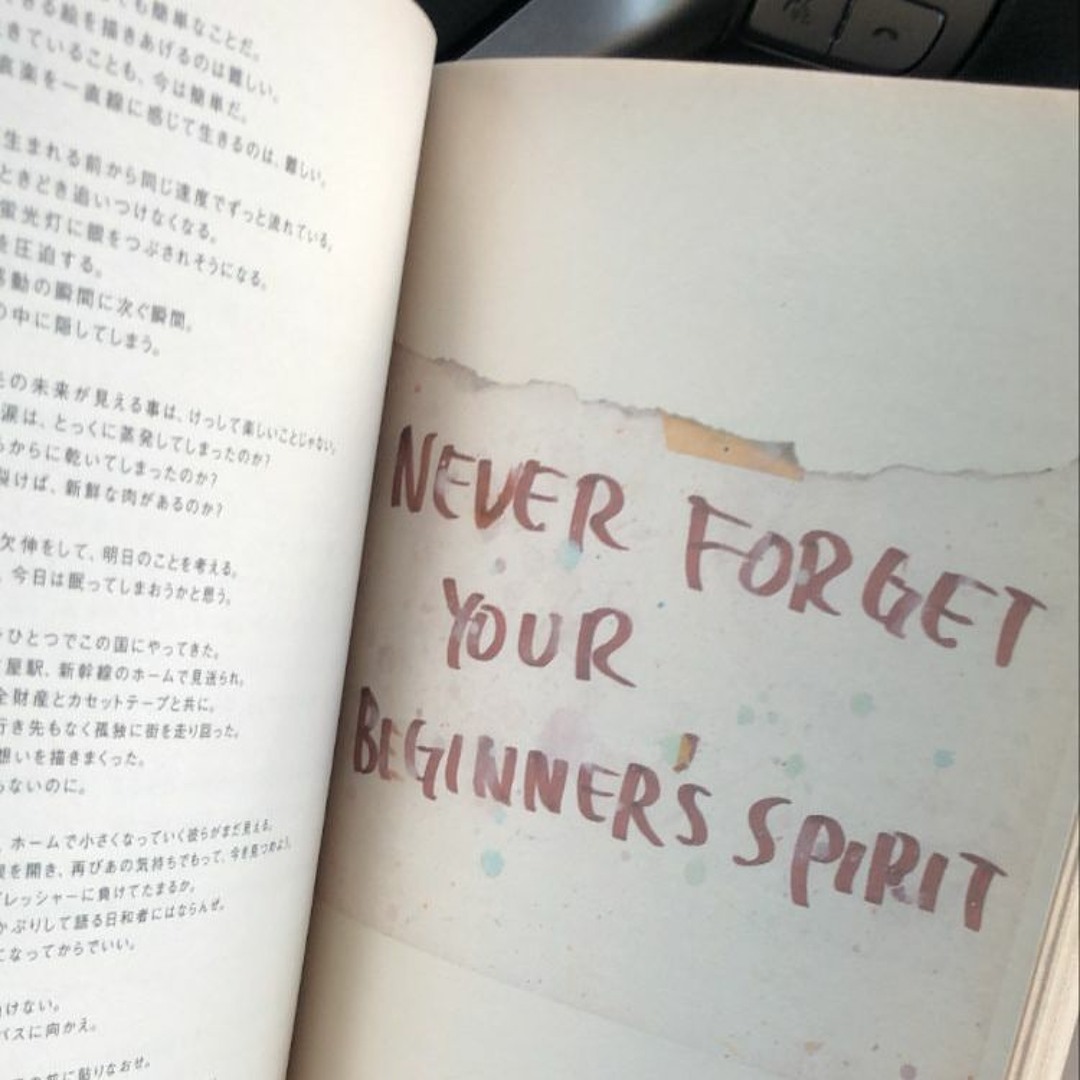 も簡単なことだ。
きる絵を描きあげるのは難しい。
きていることも、今は簡単だ。
哀楽を一直線に感じて生きるのは、難しい。
生まれる前から同じ速度でずっと流れている。
ときどき追いつけなくなる。
蛍光灯に眼をつぶされそうになる。
を圧迫する。
動の瞬間に次ぐ瞬間。
の中に隠してしまう。
の未来が見える事は、けっして楽しいことじゃない。
涙は、とっくに蒸発してしまったのか?
からに乾いてしまったのか?
裂けば、新鮮な肉があるのか?
欠伸をして、明日のことを考える。
今日は眠ってしまおうかと思う。
ひとつでこの国にやってきた。
屋駅、新幹線のホームで見送られ。
全財産とカセットテープと共に。
行き先もなく孤独に街を走り回った。
想いを描きまくった。
らないのに。
ホームで小さくなっていく彼らがまだ見える。
を開き、再びあの気持ちでもって、今を見つめよう。
レッシャーに負けてたまるか。
かぶりして語る日和者にはならんぜ。
になってからでいい。
けない。
バスに向かえ。
に貼りなおせ。
NEVER FORGET
YOUR
BEGINNER'S SPIRIT